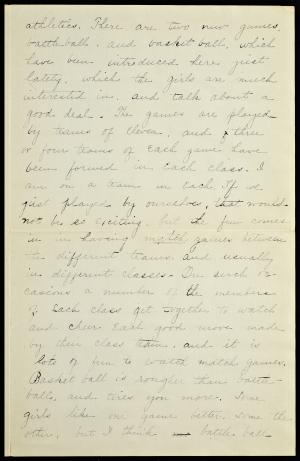 athletics. There are two new games,
battle ball, and basket ball, which
have been introduced here just
lately, which the girls are much
interested in, and talk about a
good deal. The games are played
by teams of eleven, and three
or four teams of each game have
been formed in each class. I
am on a team in each. If we
just played by ourselves, that would
not be so exciting, but the fun comes
in in having match games between
the different teams, and usually
in different classes. On such oc-
casions a number of the members
of each class get together to watch
and cheer each good move made
by their class team, and it is
lots of fun to watch match games.
Basket ball is rougher than battle
ball, and tires you more. Some
girls like one game better, some the
other, but I think battle ball